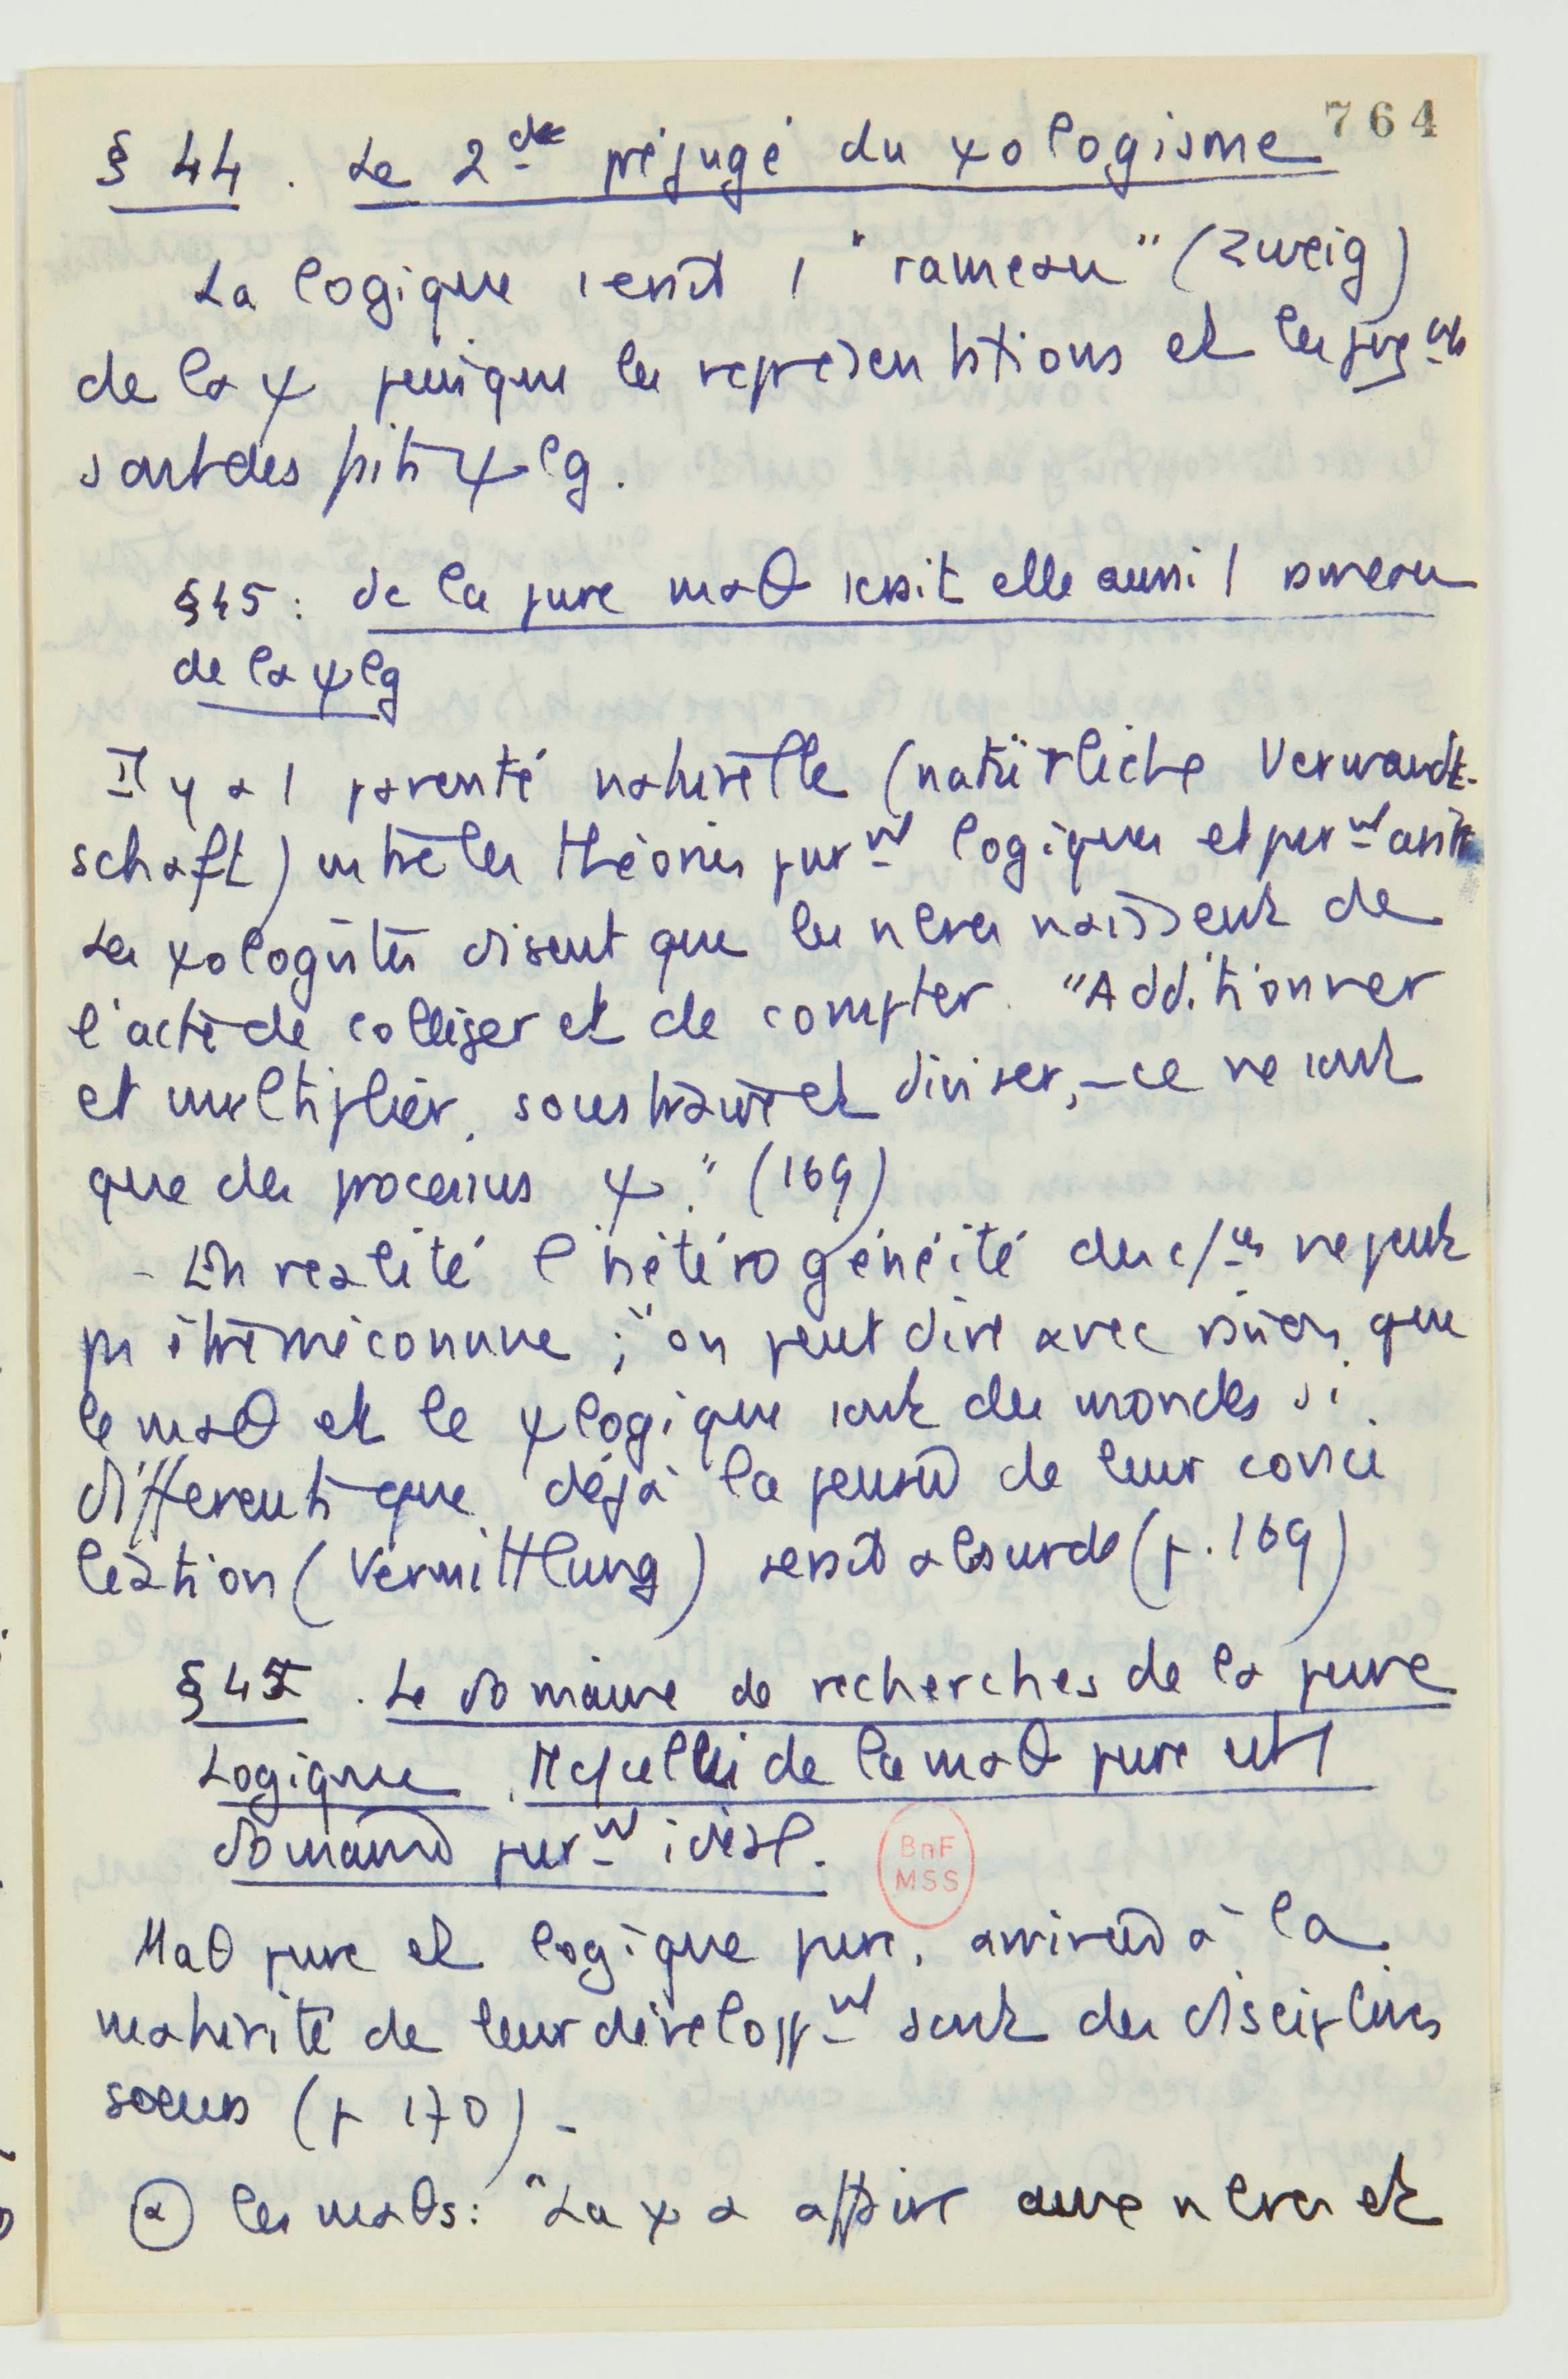 764
§ 44. Le 2de préjugé du ψologisme
La logique serait 1 "rameau" (Zweig)
de la ψ puisque les représentations et les jugmts
sont des faits ψlg.
§45: de la pure maθ serait elle aussi 1 rameau
de la ψlg
Il y a 1 parenté naturelle (natürliche Verwandt-
schaft) entre les théories purmt logiques et purmt arith
Les ψologistes disent que les nbres naissent de
l'acte de colliger et de compter. "Additionner
et multiplier, soustraire et diviser, – ce ne sont
que des processus ψ." (169)
- En réalité l'hétérogénéité des c/ces ne peut
pas être méconnue ; "on peut dire avec raison que
le maθ et le ψlogique sont des mondes si
différents que déjà la pensée de leur conci
liation (Vermittlung) serait absurde (p. 169)
§ 45. Le domaine de recherches de la pure
Logique, de la maθ pure est 1
domaine purmt idéal.
Maθ pure et logique pure, arrivées à la
maturité de leur développmt sont des disciplines
soeurs (p 170) -
α les maθs: "La ψ a affaire avec nbres et
BnF
MSS